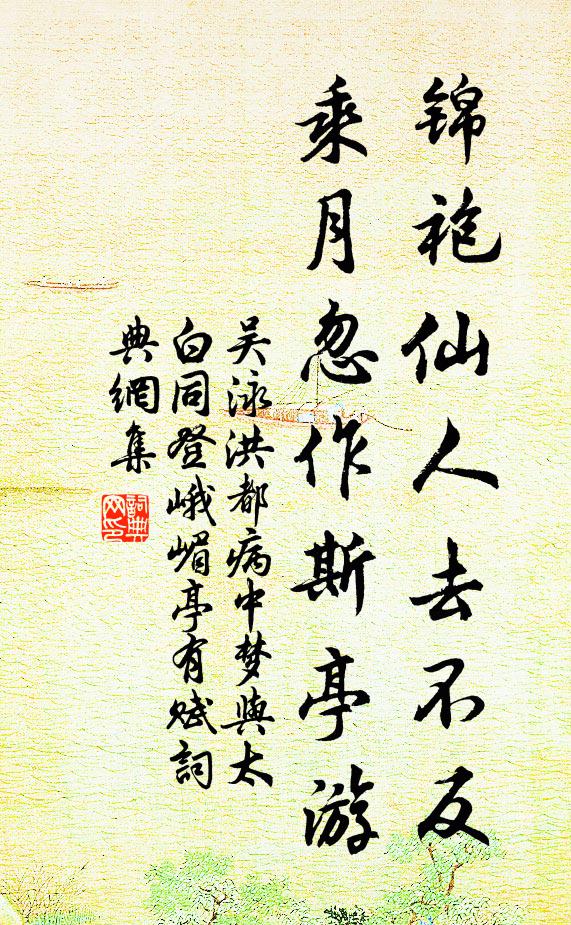 锦袍仙人去不反
乘月忽作斯亭游
吴泳洪都病中梦与太
白同登峨嵋亭有赋词
典網集
詞典
网印